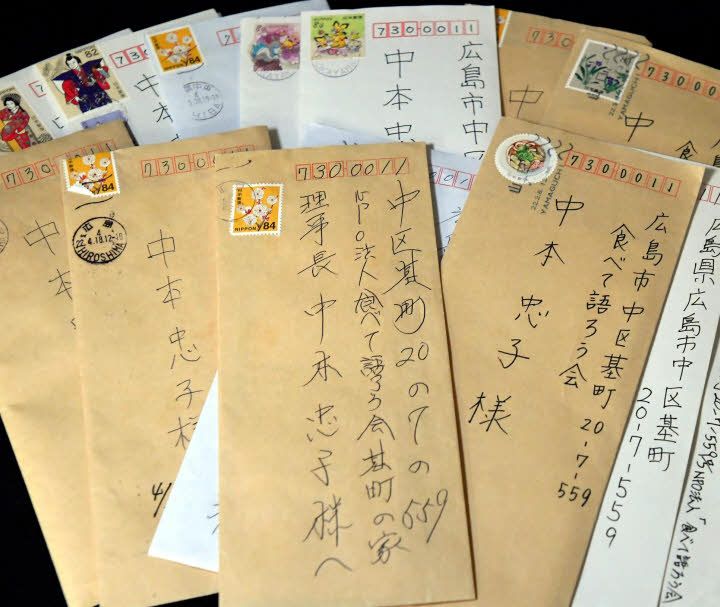 7300011
中区基町20の7の559
NPO法人食べて語ろう会基町の家
理事長 中本忠子様へ
NIPPON
¥84
7300011
広島市中区基町 20-7-559
食べて語ろう会
中本忠子様
7300011
広島市中区
中本忠
82
84
7300011
中
食
広島県広島市中区基町
20-7-559
NPO法人「食べて語ろう会
730-0011
中本忠子様
NIPPON
¥84
HIROSHIMA
730
中本